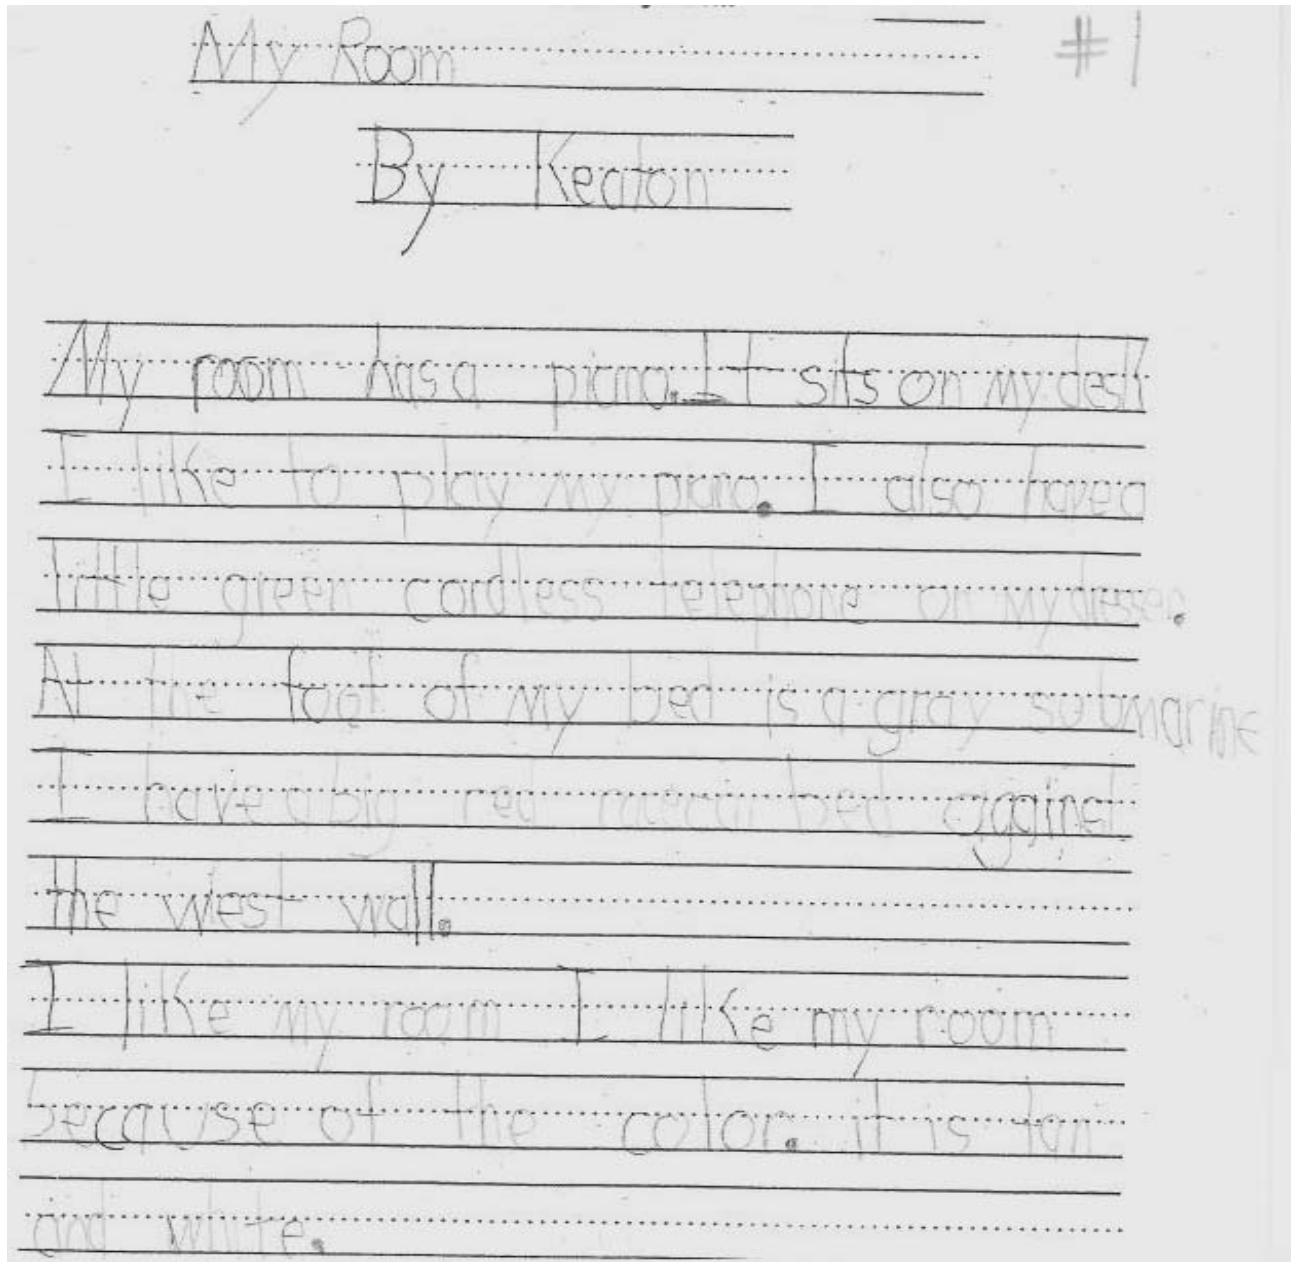 My Room
#1
By Keaton
My room has a piano. It sits on my desk
I like to play my piano. I also have a
little green cordless telephone on my dresser.
At the foot of my bed is a gray submarine
I have a big red racecar bed against
the west wall.
I like my room I like my room
because of the color. it is tan
and white.